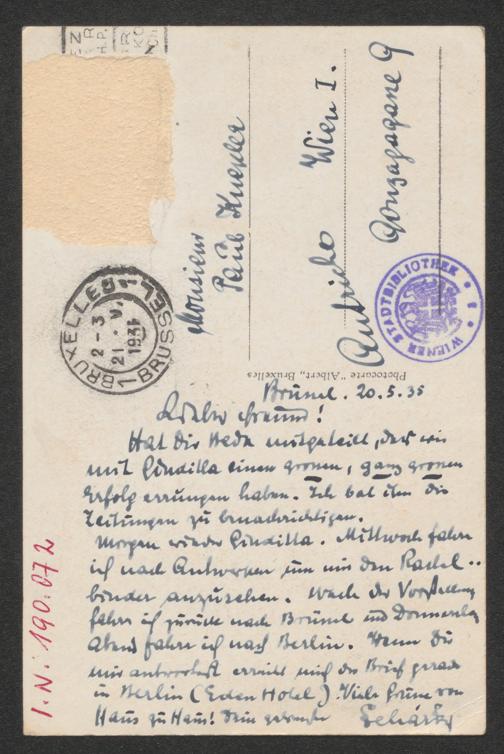 Monsieur
Paul Knepler
Wien I.
Autriche
Gonzagagasse 9
WIENER STADTBIBLIOTHEK
1 BRUXELLES 1 BRUSSEL
2-3
21. V.
193
Photocarte "Albert, Bruxelles
Brüssel. 20.5.35
Lieber Freund!
Hat Dir Heda mitgeteilt, dass wir
mit Giuditta einen grossen, ganz grossen
Erfolg errungen haben. Ich bat ihn die
Zeitungen zu benachrichtigen.
Morgen wieder Giuditta. Mittwoch fahre
ich nach Antwerpen um mir den Rastel..
binder anzusehen. Nach der Vorstellung
fahre ich zurück nach Brüssel und Donnerstag
Abend fahre ich nach Berlin. Wenn Du
mir antwortest erreicht mich der Brief gerade
in Berlin (Eden Hotel) Viele Grüsse von
Haus zu Haus! Dein Lehár
I.N. 190.072